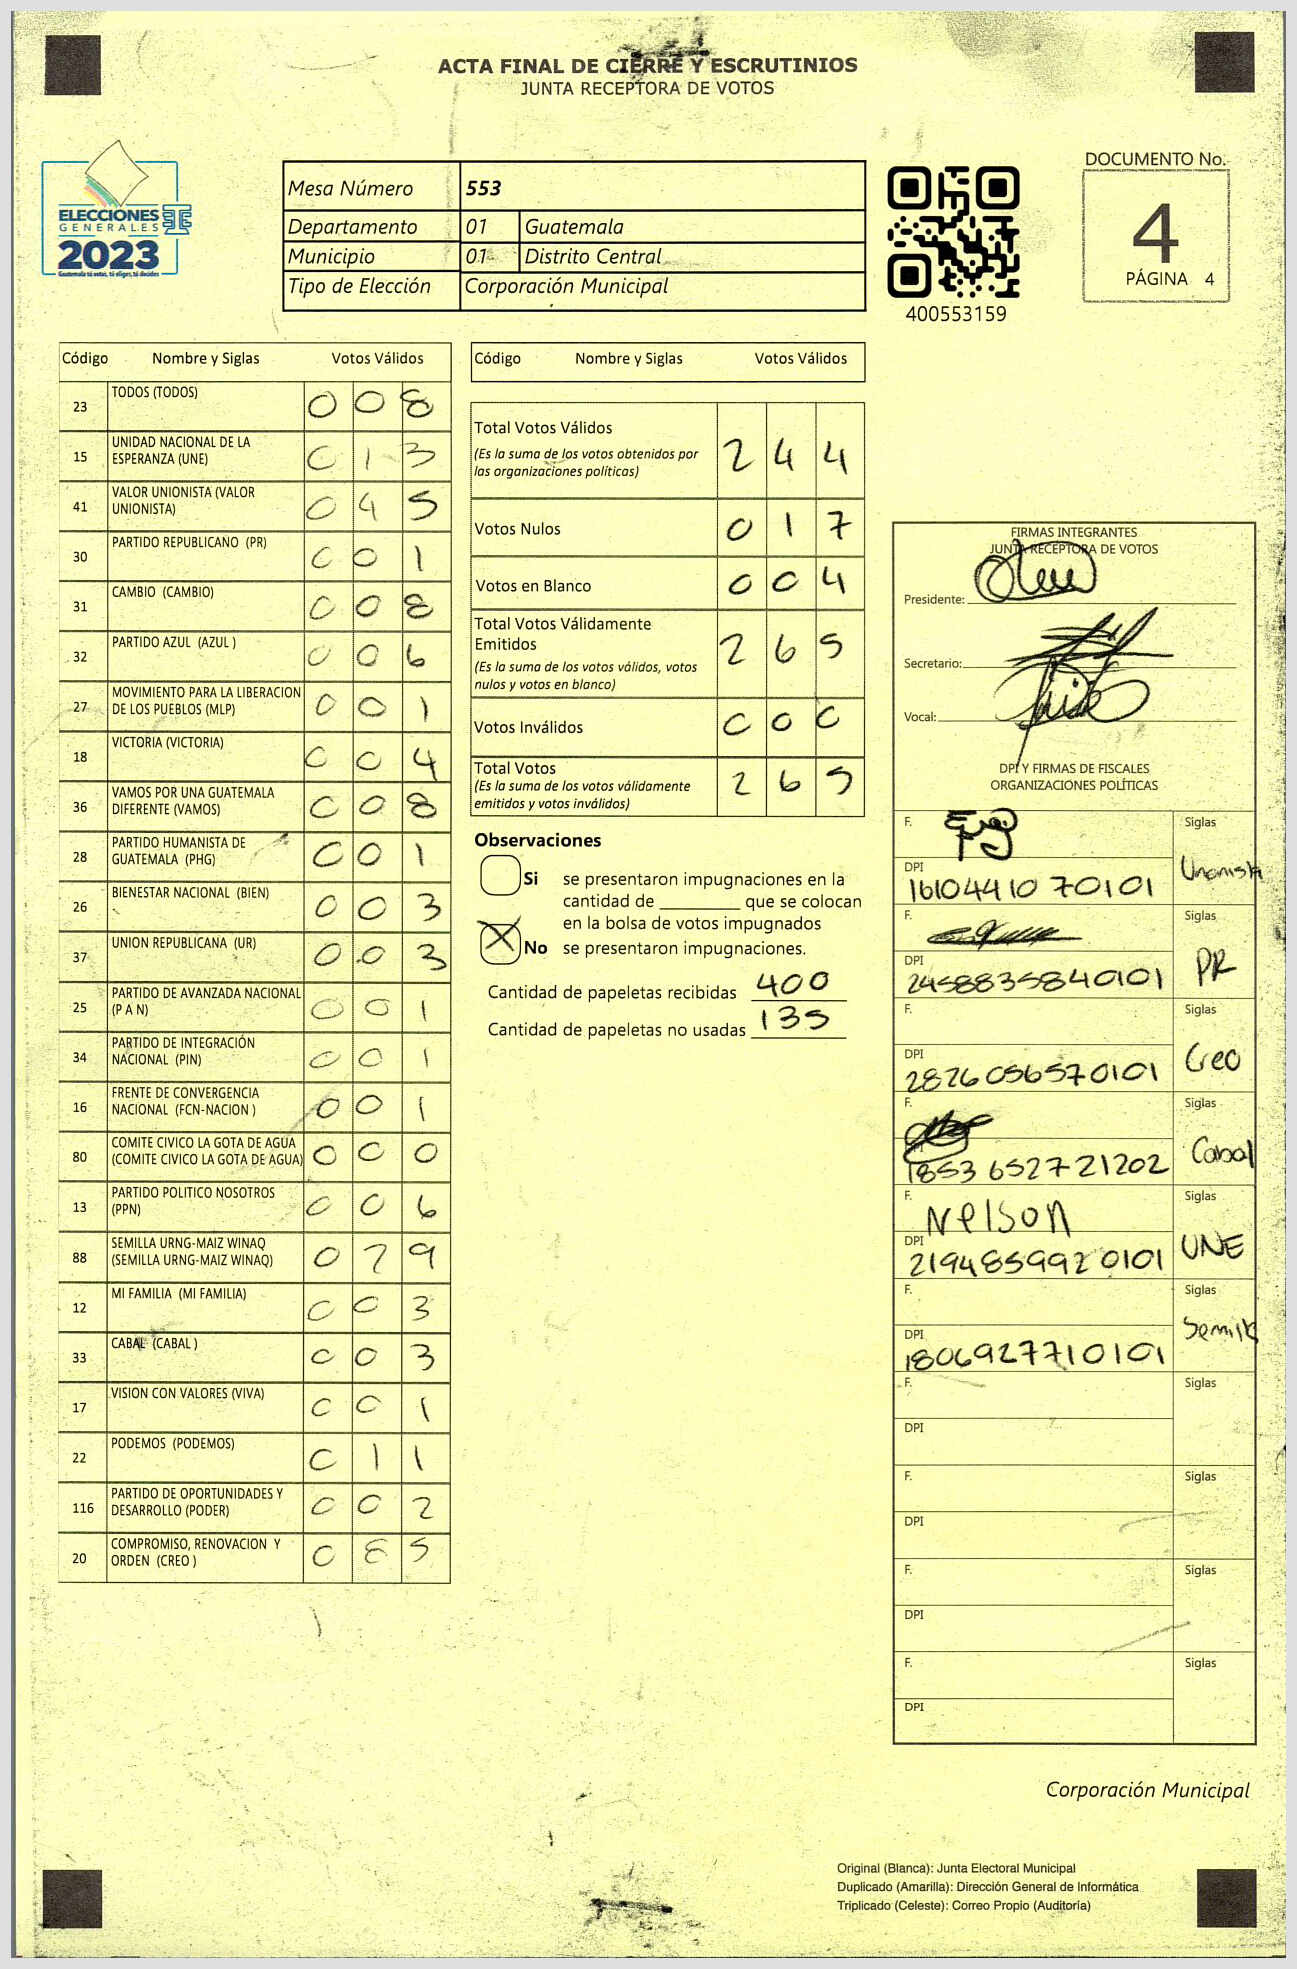 ACTA FINAL DE CIERRE Y ESCRUTINIOS
JUNTA RECEPTORA DE VOTOS
ELECCIONES
GENERALES
2023
Guatemala tú votas, tú eliges, tú decides
Mesa Número 553
Departamento 01 Guatemala
Municipio 01 Distrito Central
Tipo de Elección Corporación Municipal
400553159
DOCUMENTO No.
4
PÁGINA 4
Código Nombre y Siglas Votos Válidos
23 TODOS (TODOS) 0 0 8
15 UNIDAD NACIONAL DE LA ESPERANZA (UNE) 0 1 3
41 VALOR UNIONISTA (VALOR UNIONISTA) 0 4 5
30 PARTIDO REPUBLICANO (PR) 0 0 1
31 CAMBIO (CAMBIO) 0 0 8
32 PARTIDO AZUL (AZUL ) 0 0 6
27 MOVIMIENTO PARA LA LIBERACION DE LOS PUEBLOS (MLP) 0 0 1
18 VICTORIA (VICTORIA) 0 0 4
36 VAMOS POR UNA GUATEMALA DIFERENTE (VAMOS) 0 0 8
28 PARTIDO HUMANISTA DE GUATEMALA (PHG) 0 0 1
26 BIENESTAR NACIONAL (BIEN) 0 0 3
37 UNION REPUBLICANA (UR) 0 0 3
25 PARTIDO DE AVANZADA NACIONAL (P A N) 0 0 1
34 PARTIDO DE INTEGRACIÓN NACIONAL (PIN) 0 0 1
16 FRENTE DE CONVERGENCIA NACIONAL (FCN-NACION ) 0 0 1
80 COMITE CIVICO LA GOTA DE AGUA (COMITE CIVICO LA GOTA DE AGUA) 0 0 0
13 PARTIDO POLITICO NOSOTROS (PPN) 0 0 6
88 SEMILLA URNG-MAIZ WINAQ (SEMILLA URNG-MAIZ WINAQ) 0 29
12 MI FAMILIA (MI FAMILIA) 0 0 3
33 CABAL (CABAL ) 0 0 3
17 VISION CON VALORES (VIVA) 0 0 1
22 PODEMOS (PODEMOS) 0 1 1
116 PARTIDO DE OPORTUNIDADES Y DESARROLLO (PODER) 0 0 2
20 COMPROMISO, RENOVACION Y ORDEN (CREO ) 0 8 5
Código Nombre y Siglas Votos Válidos
Total Votos Válidos 2 4 4
(Es la suma de los votos obtenidos por
las organizaciones políticas)
Votos Nulos 0 1 7
Votos en Blanco 0 0 4
Total Votos Válidamente
Emitidos 2 6 5
(Es la suma de los votos válidos, votos
nulos y votos en blanco)
Votos Inválidos 0 0 0
Total Votos 2 6 5
(Es la suma de los votos válidamente
emitidos y votos inválidos)
Observaciones
Si se presentaron impugnaciones en la
cantidad de ________ que se colocan
en la bolsa de votos impugnados
X No se presentaron impugnaciones.
Cantidad de papeletas recibidas 400
Cantidad de papeletas no usadas 135
FIRMAS INTEGRANTES
JUNTA RECEPTORA DE VOTOS
Presidente:
Secretario:
Vocal:
DPI Y FIRMAS DE FISCALES
ORGANIZACIONES POLÍTICAS
F. Siglas
DPI 16104410 70101 Unionista
F. Siglas
DPI 2458835840101 PR
F. Siglas
DPI 2826056570101 Creo
F. Siglas
DPI 1853 652721202 Cabal
F. Nelson Siglas
DPI 2194859920101 UNE
F. Siglas
DPI 1806927710101 Semilla
F. Siglas
DPI
F. Siglas
DPI
F. Siglas
DPI
F. Siglas
DPI
Corporación Municipal
Original (Blanca): Junta Electoral Municipal
Duplicado (Amarilla): Dirección General de Informática
Triplicado (Celeste): Correo Propio (Auditoría)